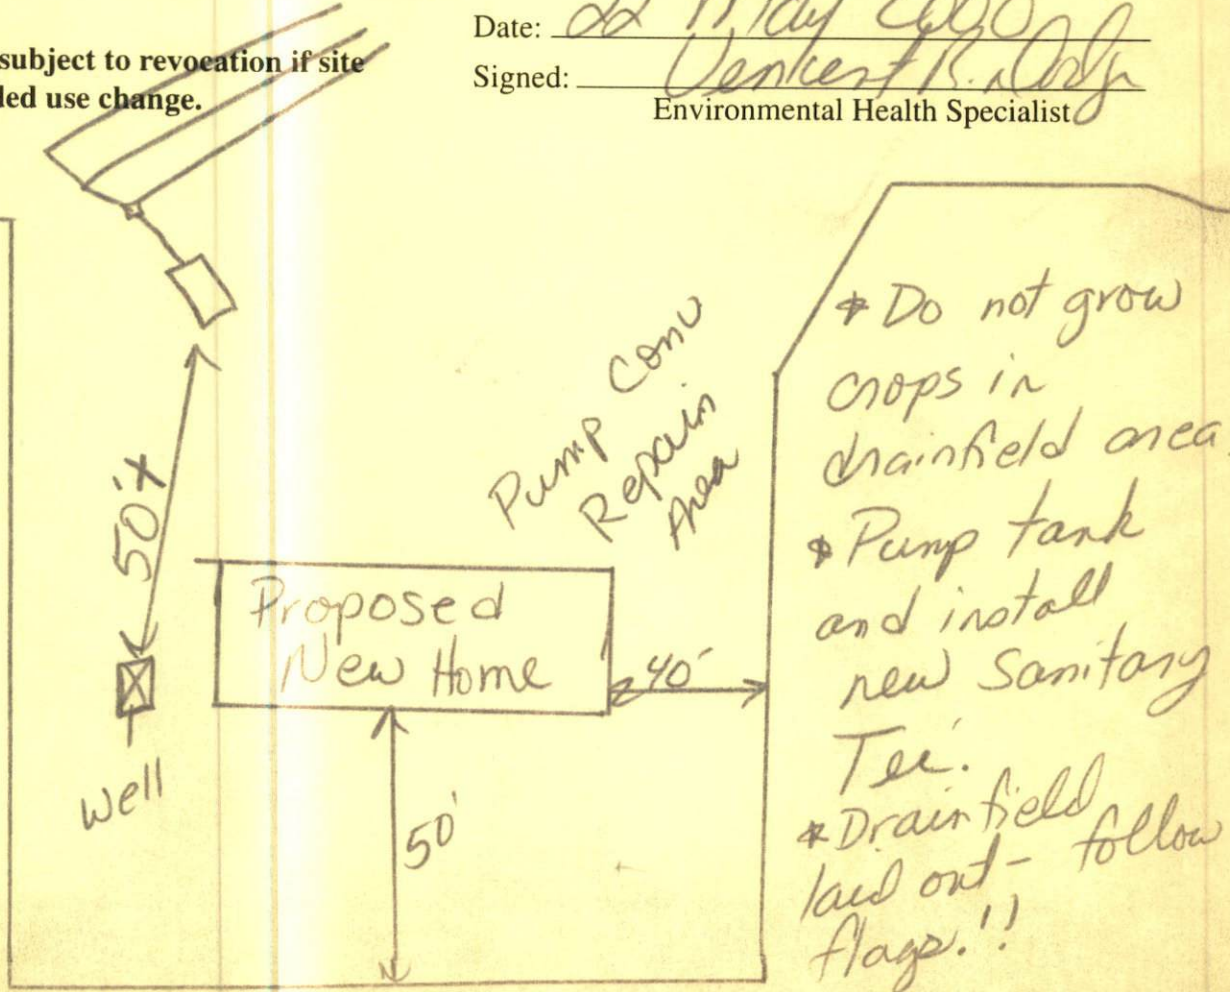 Date: 22 May 2000
subject to revocation if site
led use change.
Signed:
Environmental Health Specialist
Pump Conv
Repair
Area
50'±
Proposed
New Home
40'
well
50'
* Do not grow
crops in
drainfield area.
* Pump tank
and install
new Sanitary
Tee.
* Drainfield
laid out - follow
flags.!!